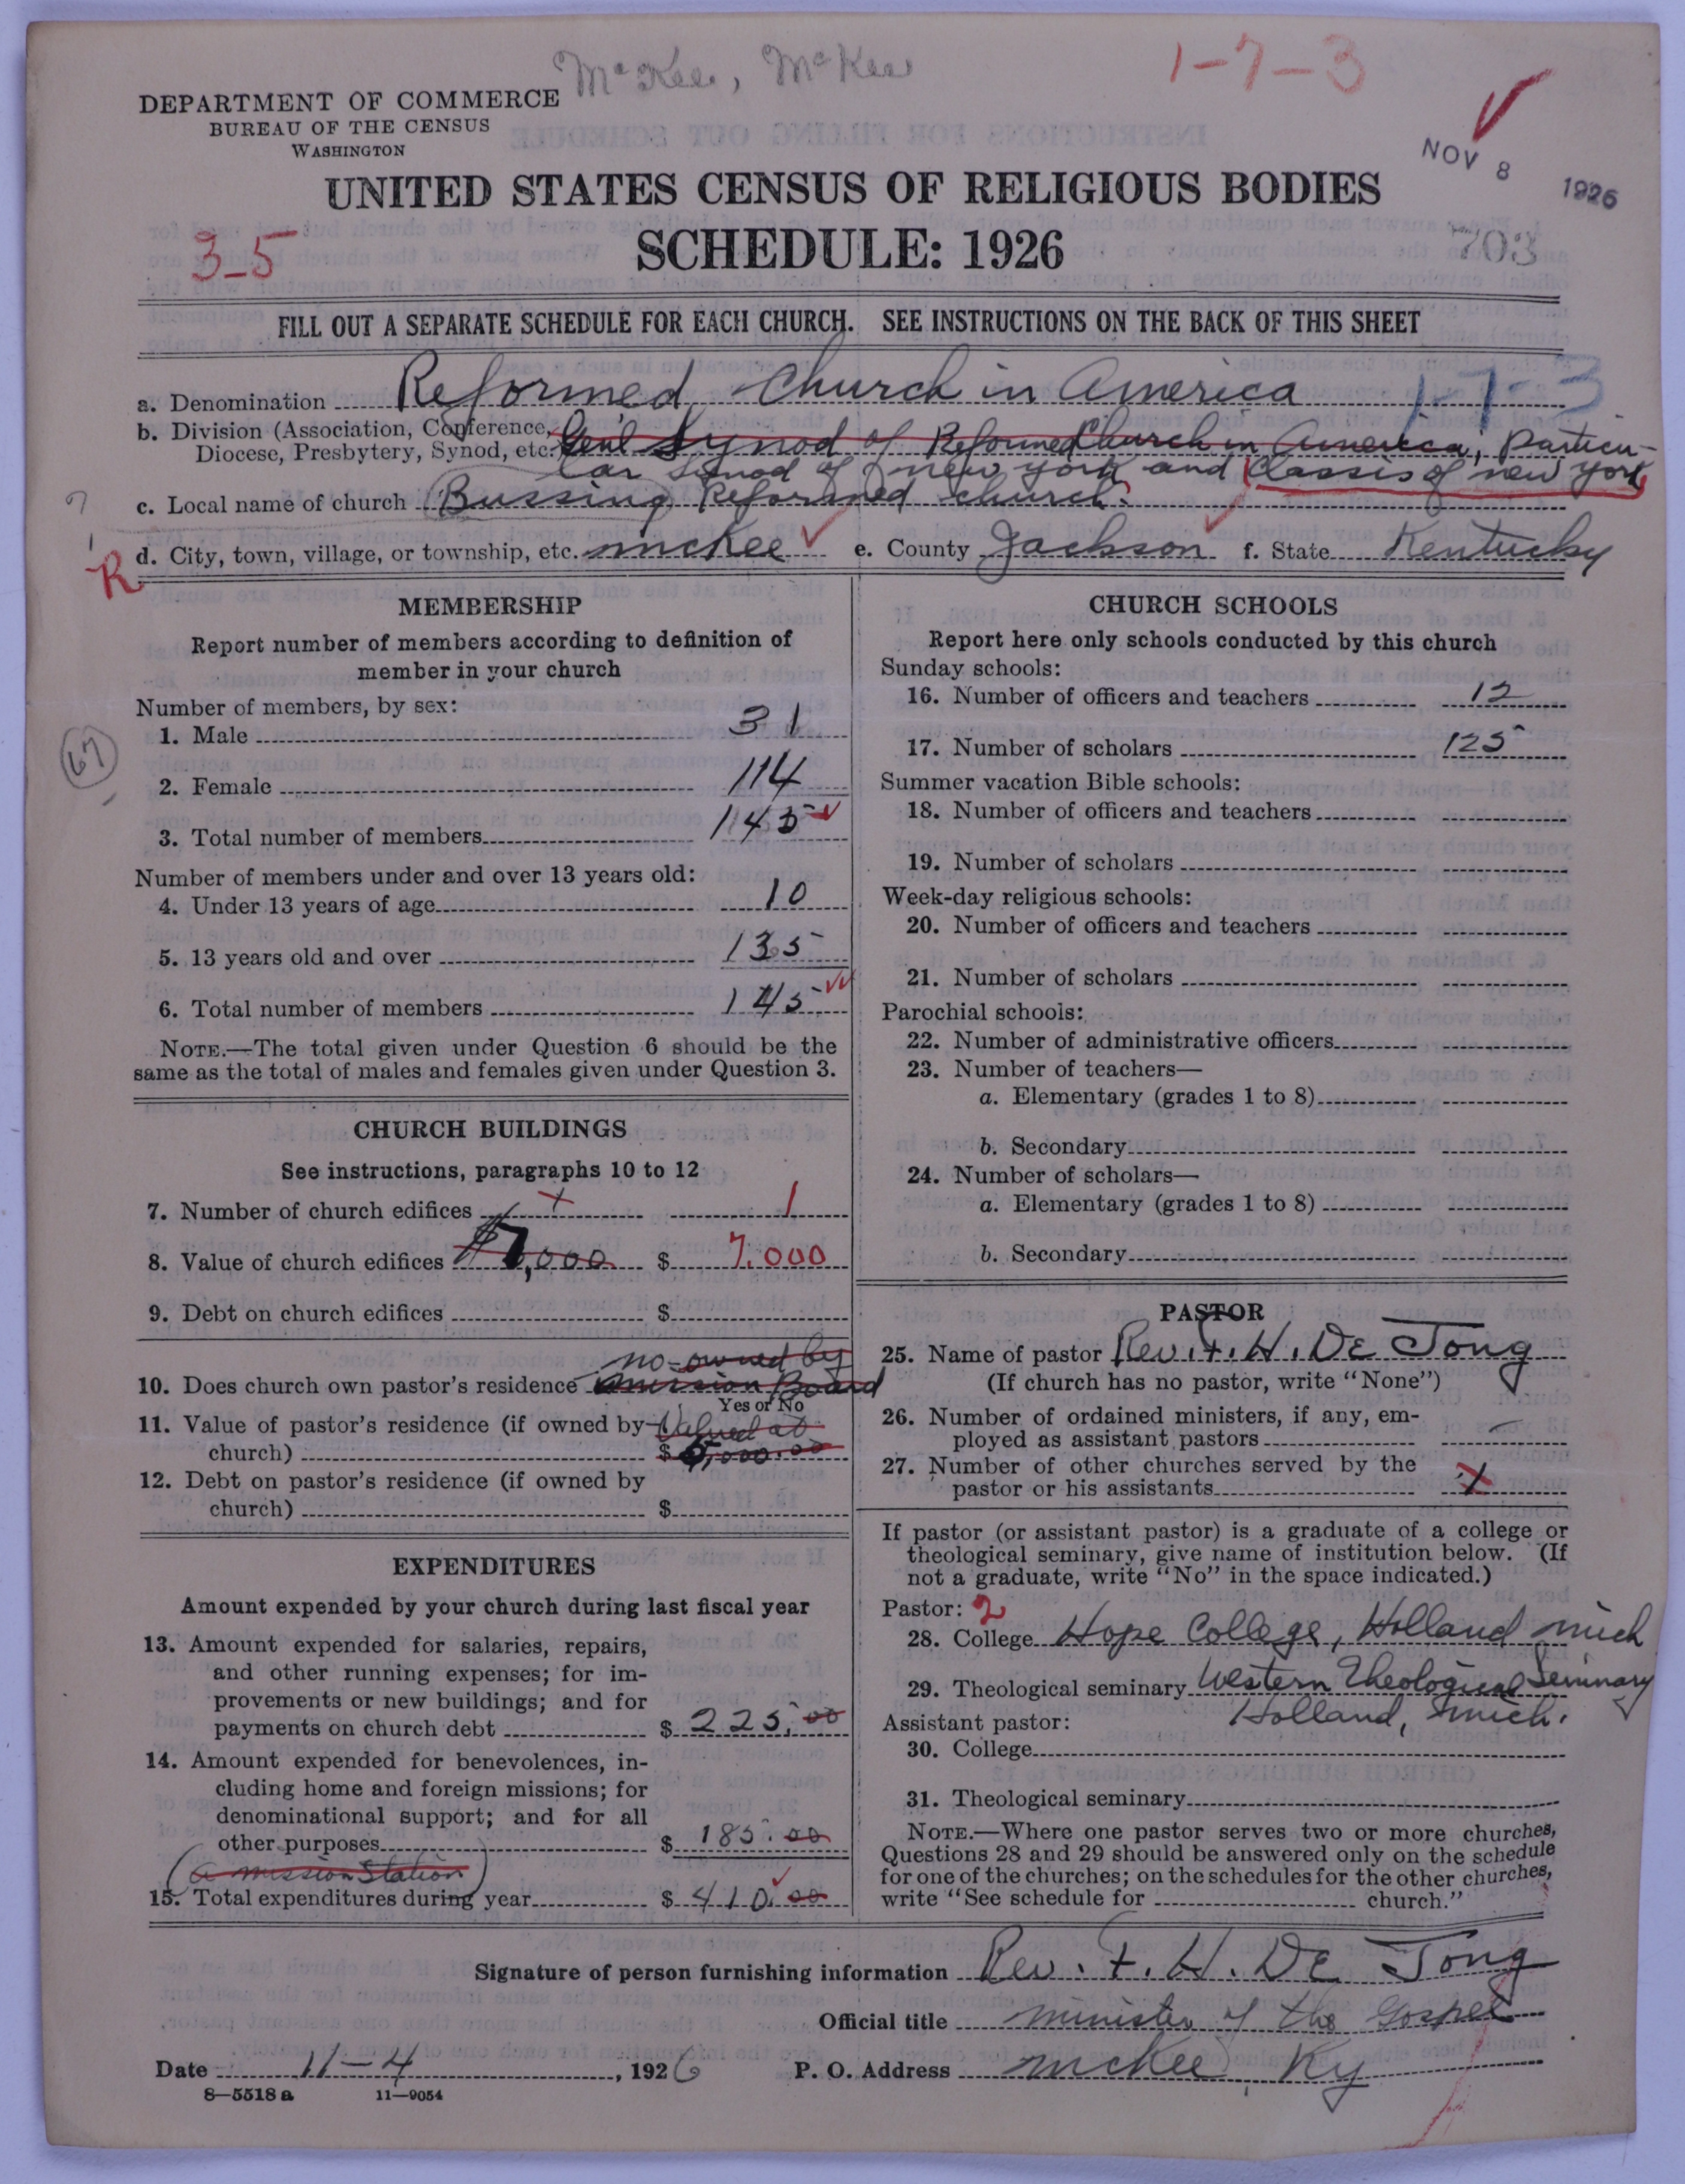 McKee, McKee
1-7-3
DEPARTMENT OF COMMERCE
BUREAU OF THE CENSUS
WASHINGTON
NOV 8 1926
UNITED STATES CENSUS OF RELIGIOUS BODIES
3-5
SCHEDULE: 1926
703
FILL OUT A SEPARATE SCHEDULE FOR EACH CHURCH. SEE INSTRUCTIONS ON THE BACK OF THIS SHEET
a. Denomination Reformed Church in America 1-7-3
b. Division (Association, Conference, Diocese, Presbytery, Synod, etc.) Genl Synod of Reformed Church in America, Particu-
lar Synod of New York and Classis of New York
c. Local name of church Bussing Reformed Church.
d. City, town, village, or township, etc. McKee e. County Jackson f. State Kentucky
R
MEMBERSHIP
Report number of members according to definition of
member in your church
Number of members, by sex:
1. Male 31
67
2. Female 114
3. Total number of members 145
Number of members under and over 13 years old:
4. Under 13 years of age 10
5. 13 years old and over 135
6. Total number of members 145
NOTE.—The total given under Question 6 should be the
same as the total of males and females given under Question 3.
CHURCH BUILDINGS
See instructions, paragraphs 10 to 12
7. Number of church edifices 1
8. Value of church edifices $7,000 $ 7,000
9. Debt on church edifices $
10. Does church own pastor's residence no-owned by
mission Board
Yes or No
11. Value of pastor's residence (if owned by Valued at
church) $ 5,000.00
12. Debt on pastor's residence (if owned by
church) $
EXPENDITURES
Amount expended by your church during last fiscal year
13. Amount expended for salaries, repairs,
and other running expenses; for im-
provements or new buildings; and for
payments on church debt $ 225.00
14. Amount expended for benevolences, in-
cluding home and foreign missions; for
denominational support; and for all
other purposes $ 185.00
(a mission station)
15. Total expenditures during year $ 410.00
CHURCH SCHOOLS
Report here only schools conducted by this church
Sunday schools:
16. Number of officers and teachers 12
17. Number of scholars 125
Summer vacation Bible schools:
18. Number of officers and teachers
19. Number of scholars
Week-day religious schools:
20. Number of officers and teachers
21. Number of scholars
Parochial schools:
22. Number of administrative officers
23. Number of teachers—
a. Elementary (grades 1 to 8)
b. Secondary
24. Number of scholars—
a. Elementary (grades 1 to 8)
b. Secondary
PASTOR
25. Name of pastor Rev. F. H. De Jong
(If church has no pastor, write "None")
26. Number of ordained ministers, if any, em-
ployed as assistant pastors
27. Number of other churches served by the
pastor or his assistants
If pastor (or assistant pastor) is a graduate of a college or
theological seminary, give name of institution below. (If
not a graduate, write "No" in the space indicated.)
Pastor: 2
28. College Hope College, Holland Mich
29. Theological seminary Western Theological Seminary
Holland, Mich.
Assistant pastor:
30. College
31. Theological seminary
NOTE.—Where one pastor serves two or more churches,
Questions 28 and 29 should be answered only on the schedule
for one of the churches; on the schedules for the other churches,
write "See schedule for church."
Signature of person furnishing information Rev. F. H. De Jong
Official title Minister of the Gospel
Date 11-4, 1926 P. O. Address McKee, Ky
8—5518 a 11—9054